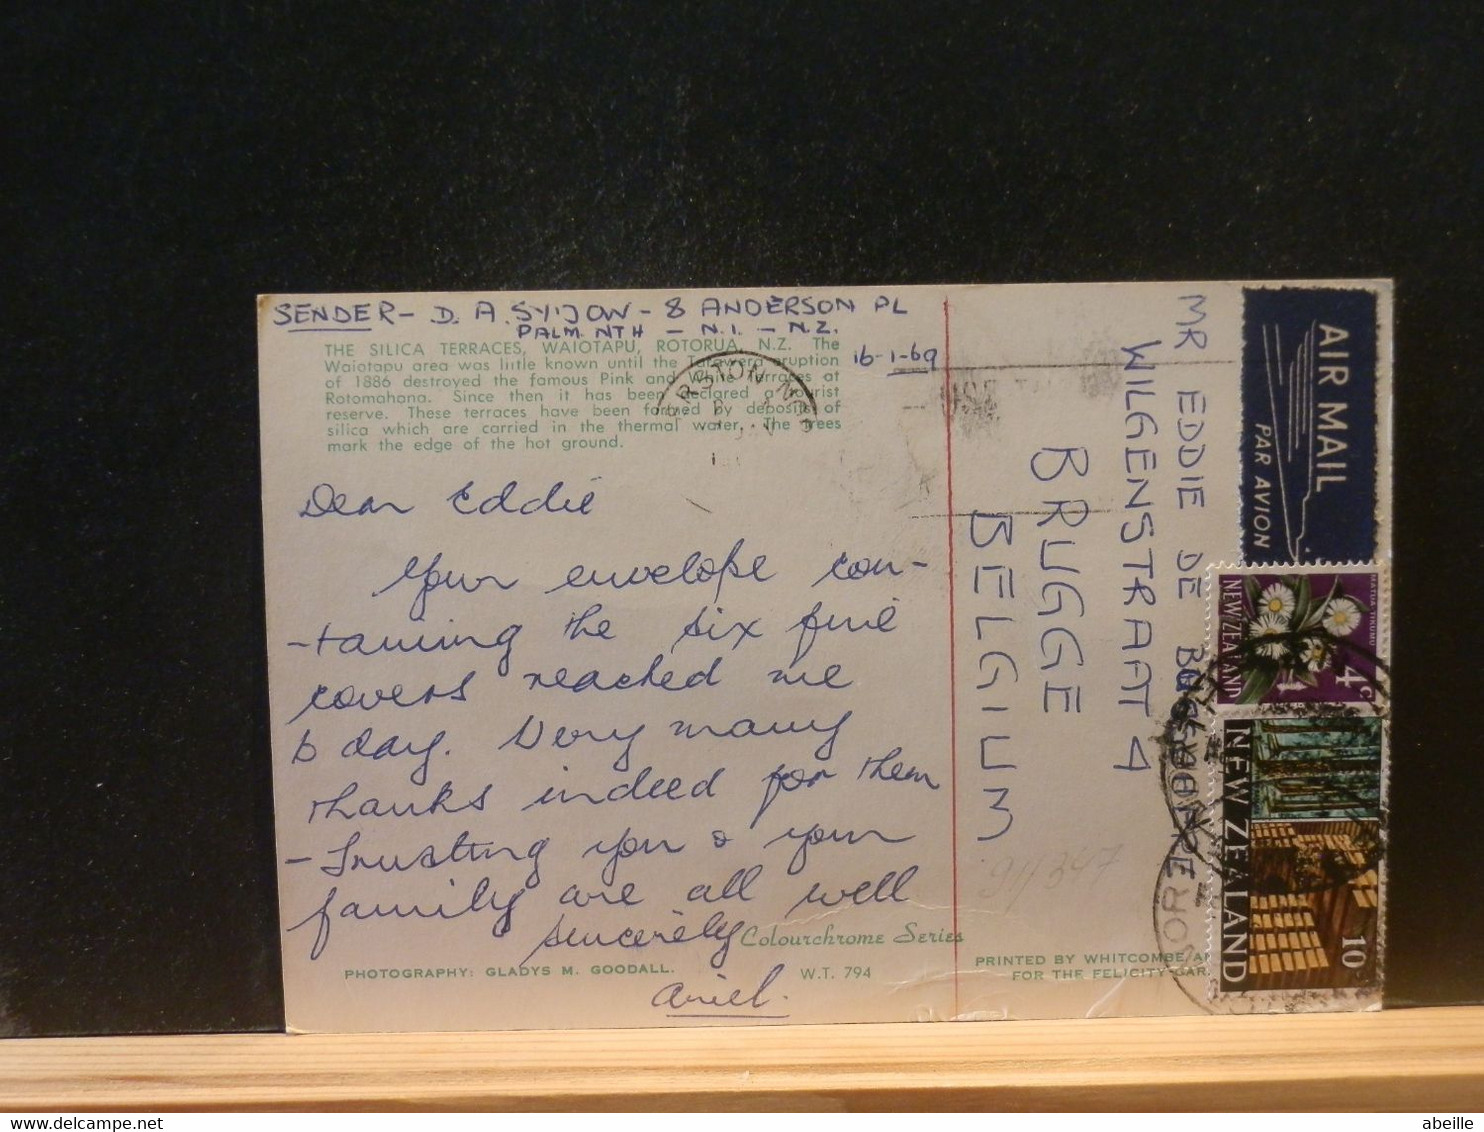 SENDER - D. A. SYIJOW - 8 ANDERSON PL
PALM. NTH - N.I. - N.Z.
16-1-69
THE SILICA TERRACES, WAIOTAPU, ROTORUA, N.Z. The
Waiotapu area was little known until the Tarawera eruption
of 1886 destroyed the famous Pink and White Terraces at
Rotomahana. Since then it has been declared a tourist
reserve. These terraces have been formed by deposits of
silica which are carried in the thermal water. The trees
mark the edge of the hot ground.
Dear Eddie
Your envelope con-
-taining the six fine
covers reached me
to day. Very many
thanks indeed for them
- Trusting you & your
family are all well
sincerely
Ariel.
Colourchrome Series
PHOTOGRAPHY: GLADYS M. GOODALL.
W.T. 794
PRINTED BY WHITCOMBE AN
FOR THE FELICITY CAR
MR EDDIE DE
WILGENSTRAAT 4
BRUGGE
BELGIUM
94347
AIR MAIL
PAR AVION
MATUA TIKUMU
NEW ZEALAND
4c
NEW ZEALAND
10c
abeille